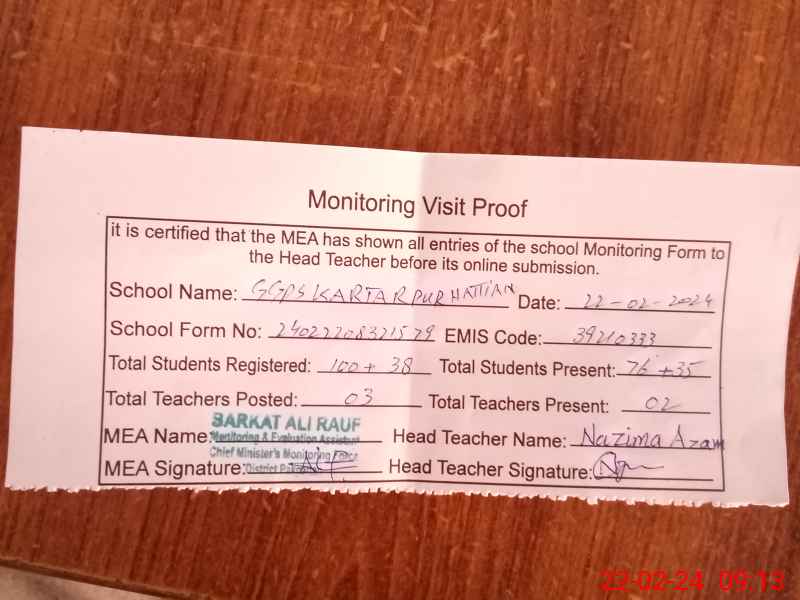 Monitoring Visit Proof
it is certified that the MEA has shown all entries of the school Monitoring Form to
the Head Teacher before its online submission.
School Name: GGPS KARTARPUR HATTIAN Date: 22-02-2024
School Form No: EMIS Code: 39210333
Total Students Registered: 100 + 38 Total Students Present: 76 + 35
Total Teachers Posted: 03 Total Teachers Present: 02
BARKAT ALI RAUF
MEA Name: Monitoring & Evaluation Assistant Head Teacher Name: Nazima Azam
Chief Minister's Monitoring Force
MEA Signature: District Head Teacher Signature:
22-02-24 09:13